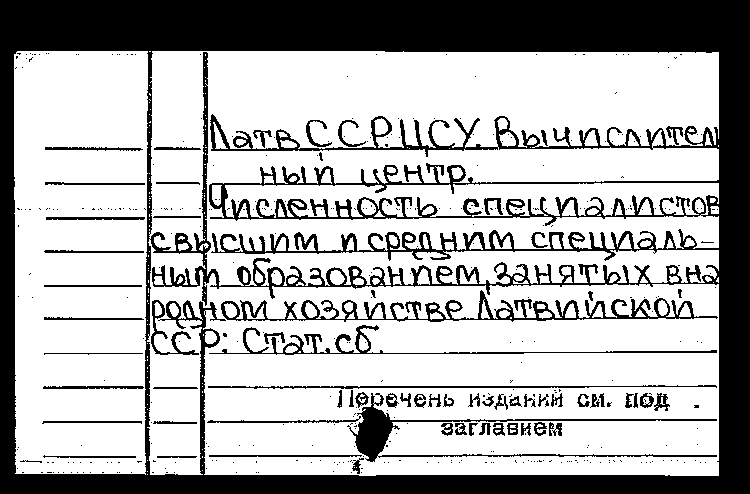 Латв ССР. ЦСУ. Вычислитель
ный центр.
Численность специалистов
с высшим и средним специаль-
ным образованием, занятых в на
родном хозяйстве Латвийской
ССР: Стат. сб.
Перечень изданий см. под
заглавием
4